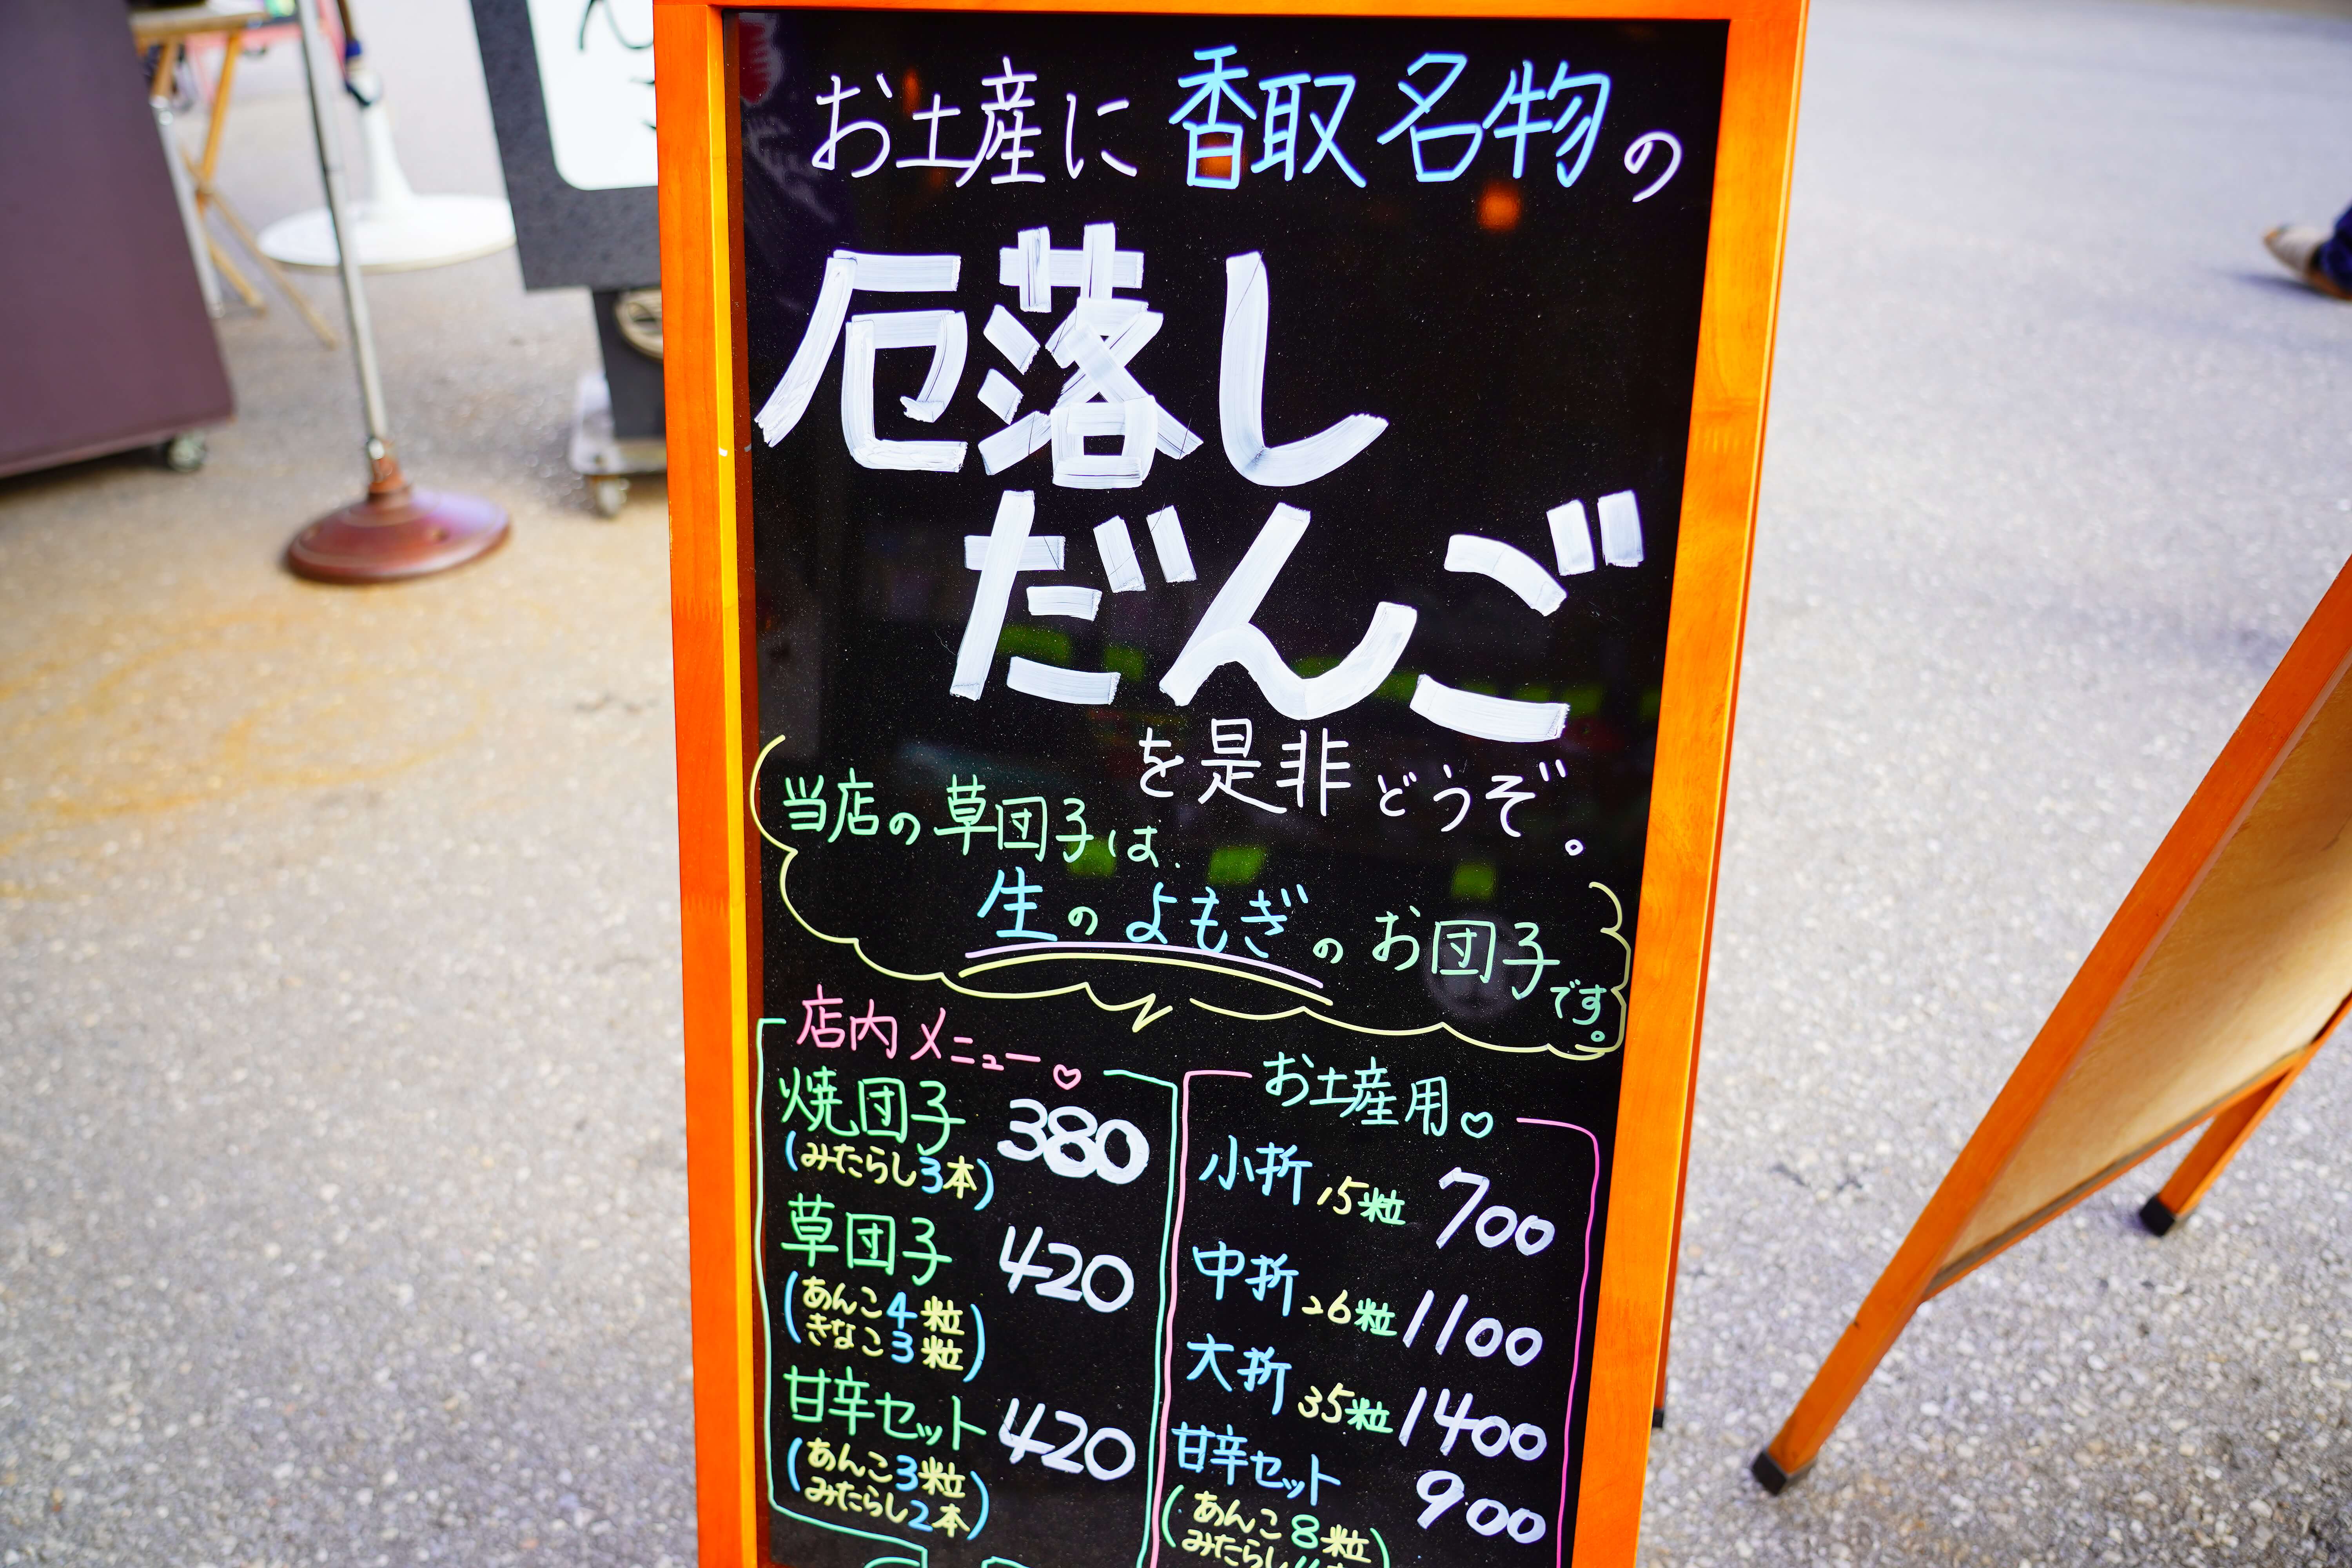 お土産に香取名物の
厄落し
だんご
を是非どうぞ。
当店の草団子は、
生のよもぎのお団子です。
店内メニュー♡
焼団子 380
(みたらし3本)
草団子 420
(あんこ4粒
きなこ3粒)
甘辛セット 420
(あんこ3粒
みたらし2本)
お土産用♡
小折 15粒 700
中折 26粒 1100
大折 35粒 1400
甘辛セット 900
(あんこ8粒)
みたらし